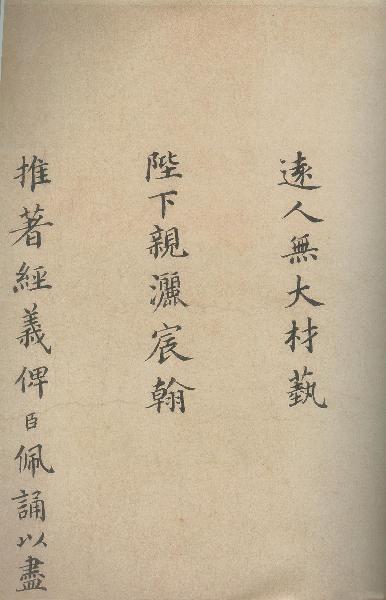 逺人無大材藝
陛下親灑宸翰
推著經義俾臣佩誦以盡